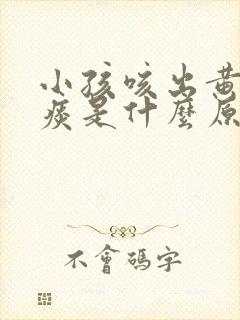 小孩咳出黄
痰是什麼原
不會碼字